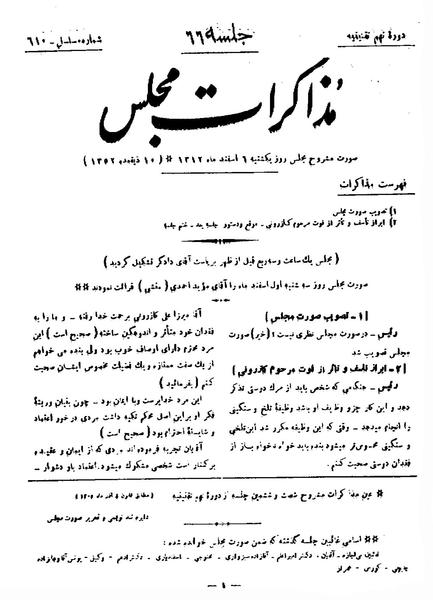 دورهٔ نهم تقنینیه
جلسه ۶۶
شماره مسلسل - ۶۱۰
مذاکرات مجلس
صورت مشروح مجلس روز یکشنبه ۶ اسفند ماه ۱۳۱۲ * (۱۰ ذیقعده ۱۳۵۲)
فهرست مذاکرات
۱) تصویب صورت مجلس
۲) ابراز تأسف و تأثر از فوت مرحوم کازرونی - موقع و دستور جلسه بعد - ختم جلسه
(مجلس یک ساعت و سه ربع قبل از ظهر بریاست آقای دادگر تشکیل گردید)
صورت مجلس روز سه شنبه اول اسفند ماه را آقای مؤید احمدی (منشی) قرائت نمودند **
[۱ - تصویب صورت مجلس]
رئیس - در صورت مجلس نظری نیست؛ (خیر) صورت
مجلس تصویب شد
[۲ - ابراز تأسف و تأثر از فوت مرحوم کازرونی]
رئیس - هنگامی که شخص باید از مرک دوستی تذکر
دهد و این کار جزو وظایف او باشد وظیفهٔ تلخ و سنگینی
را انجام میدهد - وقتی که این وظیفه مکرر شد این تلخی
و سنگینی محسوس‌تر میشود بنده باید خواه نخواه باز از
فقدان دوستی صحبت کنم.
آقا میرزا علی کازرونی برحمت خدا رفته - و ما را به
فقدان خود متأثر و اندوهگین ساخته (صحیح است) این
مرد محترم دارای اوصاف خوب بود ولی بنده می خواهم
از یک صفت ممتازه و یک فضیلت مخصوص ایشان صحبت
کنم (بفرمائید)
این مرد خداپرست و با ایمان بود - چون بقیان ورثیهٔ
فکر او بر این اصل محکم تکیه داشت مردی در خور اعتماد
و شایستهٔ احترام بود (صحیح است)
آقایان تجربه فرموده‌اند مردی که از ایمان و عقیده
برکنار است شخصی مشکوک میشود. اعتماد باو دشوار -
* عین مذاکرات مشروح شصت و ششمین جلسه از دورهٔ نهم تقنینیه
دایره تند نویسی و تحریر صورت مجلس
** اسامی غائبین جلسه گذشته که ضمن صورت مجلس خوانده شده:
چایچی - کورس -
- ۱ -